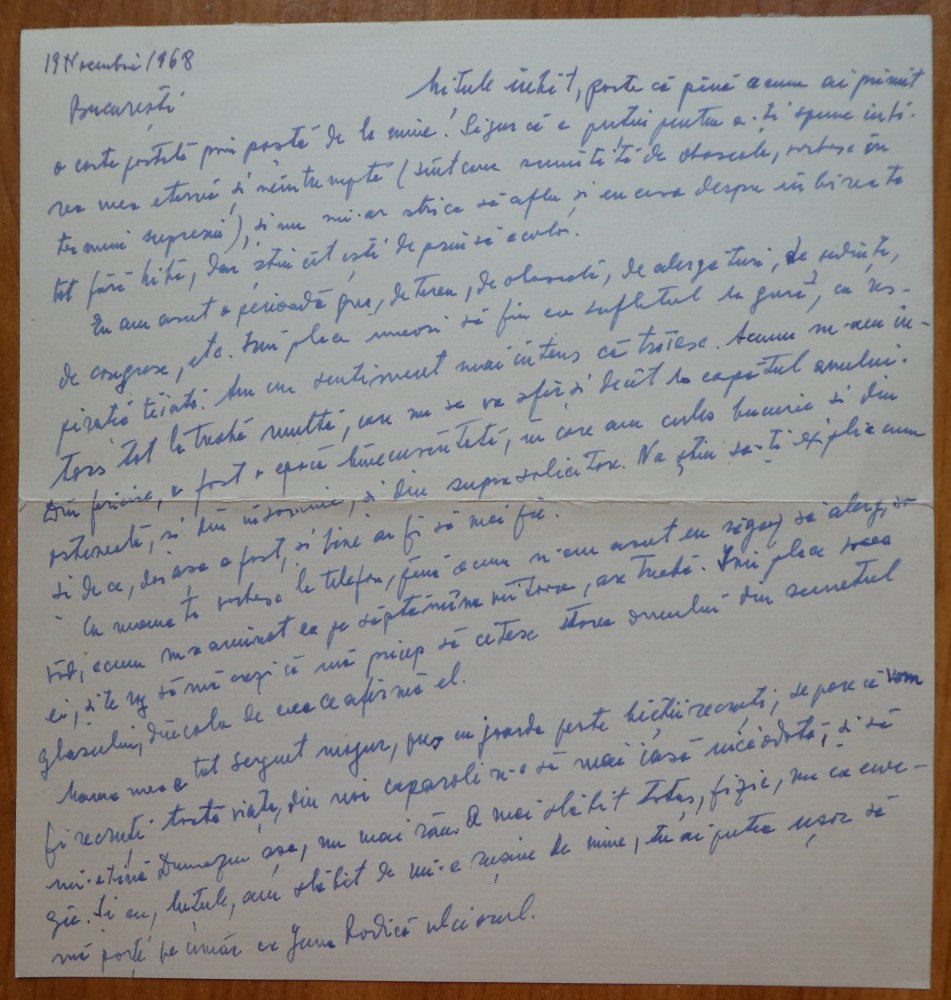 19 Noembrie/1968
București
Mitule iubit, poate că pînă acum ai primit
o carte poștală prin poștă de la mine! Sigur că e puțin pentru a-ți spune iubi-
rea mea eternă și neîntreruptă (sînt cam amețită de oboseală, vorbesc în
termeni supremi), și nu mi-ar strica să aflu și eu ceva despre iubirea ta
tot fără hibă, dar știu cît ești de prins acolo.
Eu am avut o perioadă grea, de teren, de oboseală, de alergături, de ședințe,
de congrese, etc. Îmi place uneori să fiu cu sufletul la gură, cu res-
pirația tăiată. Am un sentiment mai intens că trăiesc. Acum m-am în-
tors tot la treabă multă, care nu se va sfîrși decît la capătul anului.
Din fericire, a fost o epocă binecuvîntată, în care am cules bucurie și din
osteneală, și din insomnie, și din suprasolicitare. Nu știu să-ți explic cum
și de ce, dar așa a fost, și bine ar fi să mai fie.
Cu mama ta vorbesc la telefon, pînă acum n-am avut eu răgaz să alerg, s-o
văd; acum m-a amînat ea pe săptămîna viitoare, are treabă. Îmi place vocea
ei, și te rog să mă crezi că mă pricep să citesc starea omului din sunetul
glasului, dincolo de ceea ce afirmă el.
Mama mea e tot sergent major, pus cu joarda peste bieții recruți, se pare că vom
fi recruți toată viața, din noi caporali n-o să mai iasă niciodată; și să
mi-o țină Dumnezeu așa, nu mai rău. A mai slăbit totuși, fizic, nu ca ener-
gie. Și eu, Mitule, am slăbit de mi-e rușine de mine, tu ai putea ușor să
mă porți pe umăr ca Juna Rodică ulciorul.